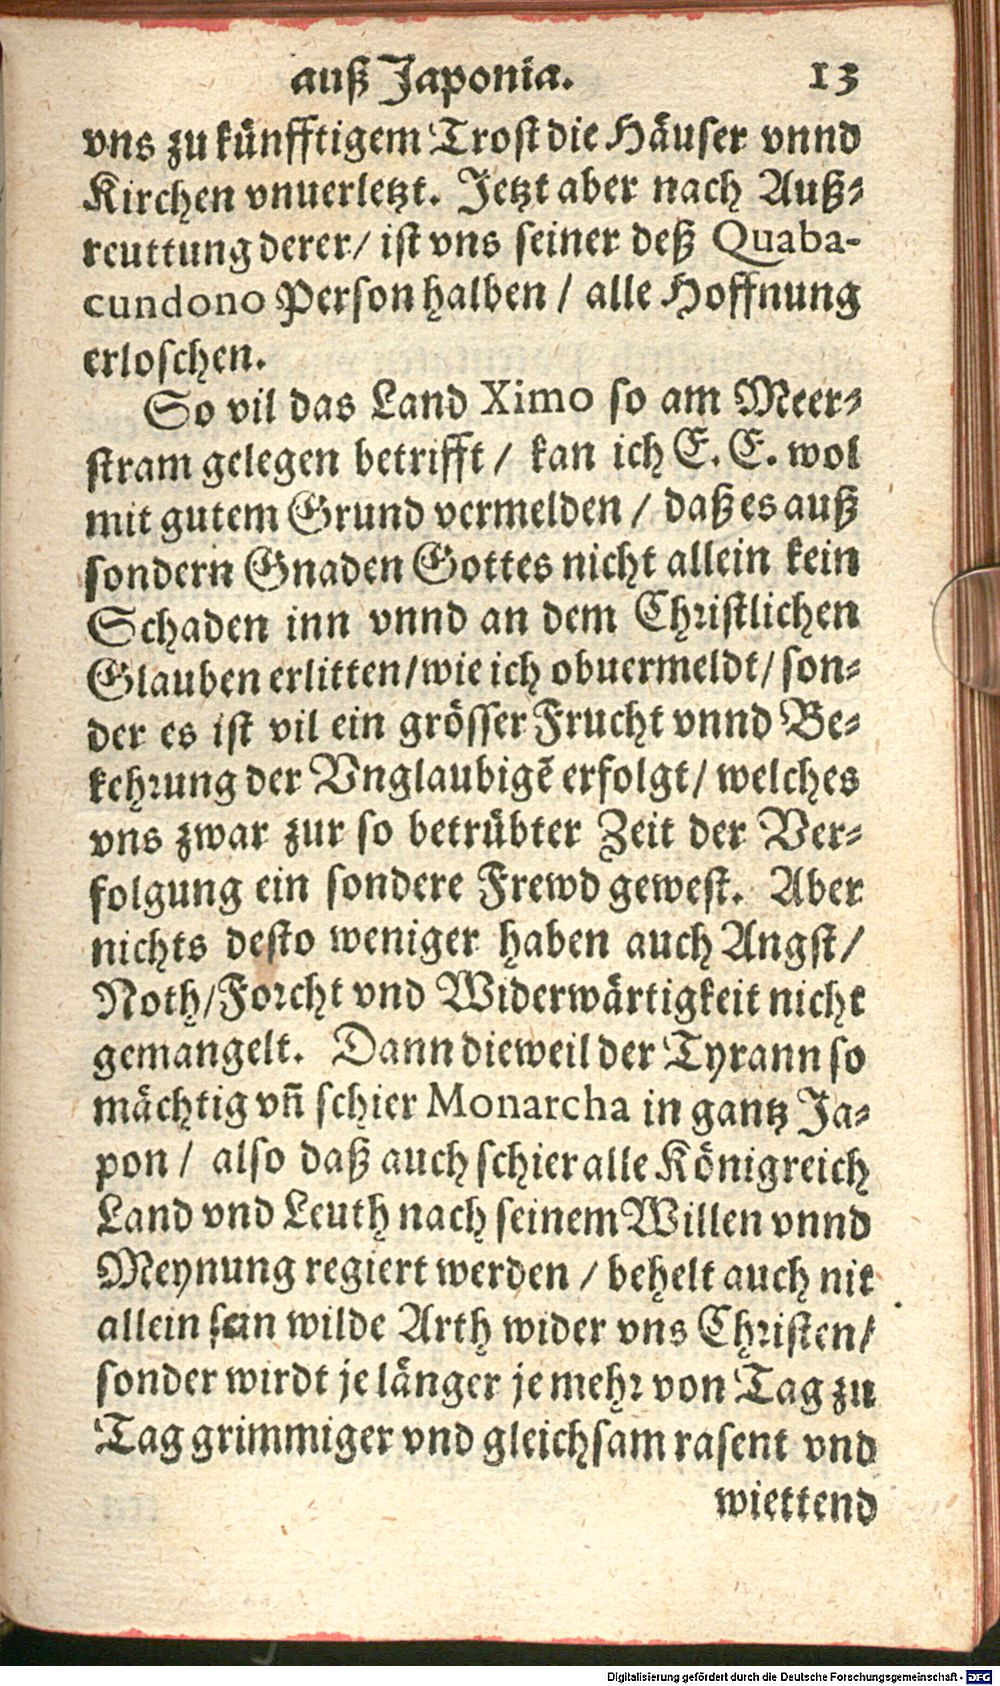 auß Japonia. 13
vns zu künfftigem Trost die Häuser vnnd
Kirchen vnuerletzt. Jetzt aber nach Auß-
reuttung derer/ ist vns seiner deß Quaba-
cundono Person halben / alle Hoffnung
erloschen.
So vil das Land Ximo so am Meer-
stram gelegen betrifft / kan ich E. E. wol
mit gutem Grund vermelden / daß es auß
sondern Gnaden Gottes nicht allein kein
Schaden inn vnnd an dem Christlichen
Glauben erlitten/wie ich obuermeldt/ son-
der es ist vil ein grösser Frucht vnnd Be-
kehrung der Vnglaubigē erfolgt/ welches
vns zwar zur so betrübter Zeit der Ver-
folgung ein sondere Frewd gewest. Aber
nichts desto weniger haben auch Angst/
Noth/Forcht vnd Widerwärtigkeit nicht
gemangelt. Dann dieweil der Tyrann so
mächtig vñ schier Monarcha in gantz Ja-
pon / also daß auch schier alle Königreich
Land vnd Leuth nach seinem Willen vnnd
Meynung regiert werden / behelt auch nit
allein sein wilde Arth wider vns Christen/
sonder wirdt je länger je mehr von Tag zu
Tag grimmiger vnd gleichsam rasent vnd
wiettend
Digitalisierung gefördert durch die Deutsche Forschungsgemeinschaft - DFG